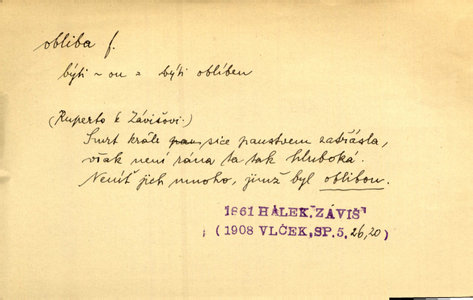 obliba f.
býti ~ou = býti oblíben
(Ruperto k Závišovi.)
Smrt krále pan sice panstvem zatřásla,
však není rána ta tak hluboká.
Neníť jich mnoho, jimž byl oblibou.
1861 HÁLEK, "ZÁVIŠ"
(1908 VLČEK, SP. 5, 26,20)